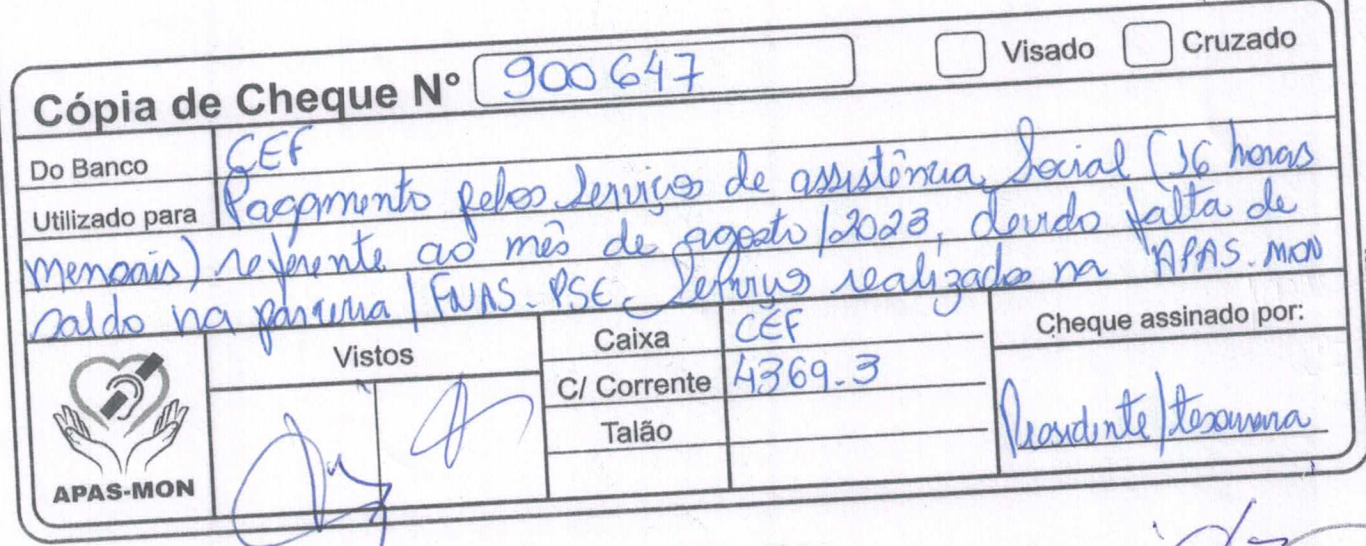 Cópia de Cheque Nº 900647 Visado Cruzado
Do Banco CEF
Utilizado para Pagamento pelos Serviços de assistência Social (16 horas
mensais) referente ao mês de agosto/2023, devido falta de
saldo na parceria / FNAS-PSE. Serviços realizados na APAS-MON
Vistos Caixa CEF Cheque assinado por:
C/ Corrente 4369-3
Talão Presidente/tesoureira
APAS-MON